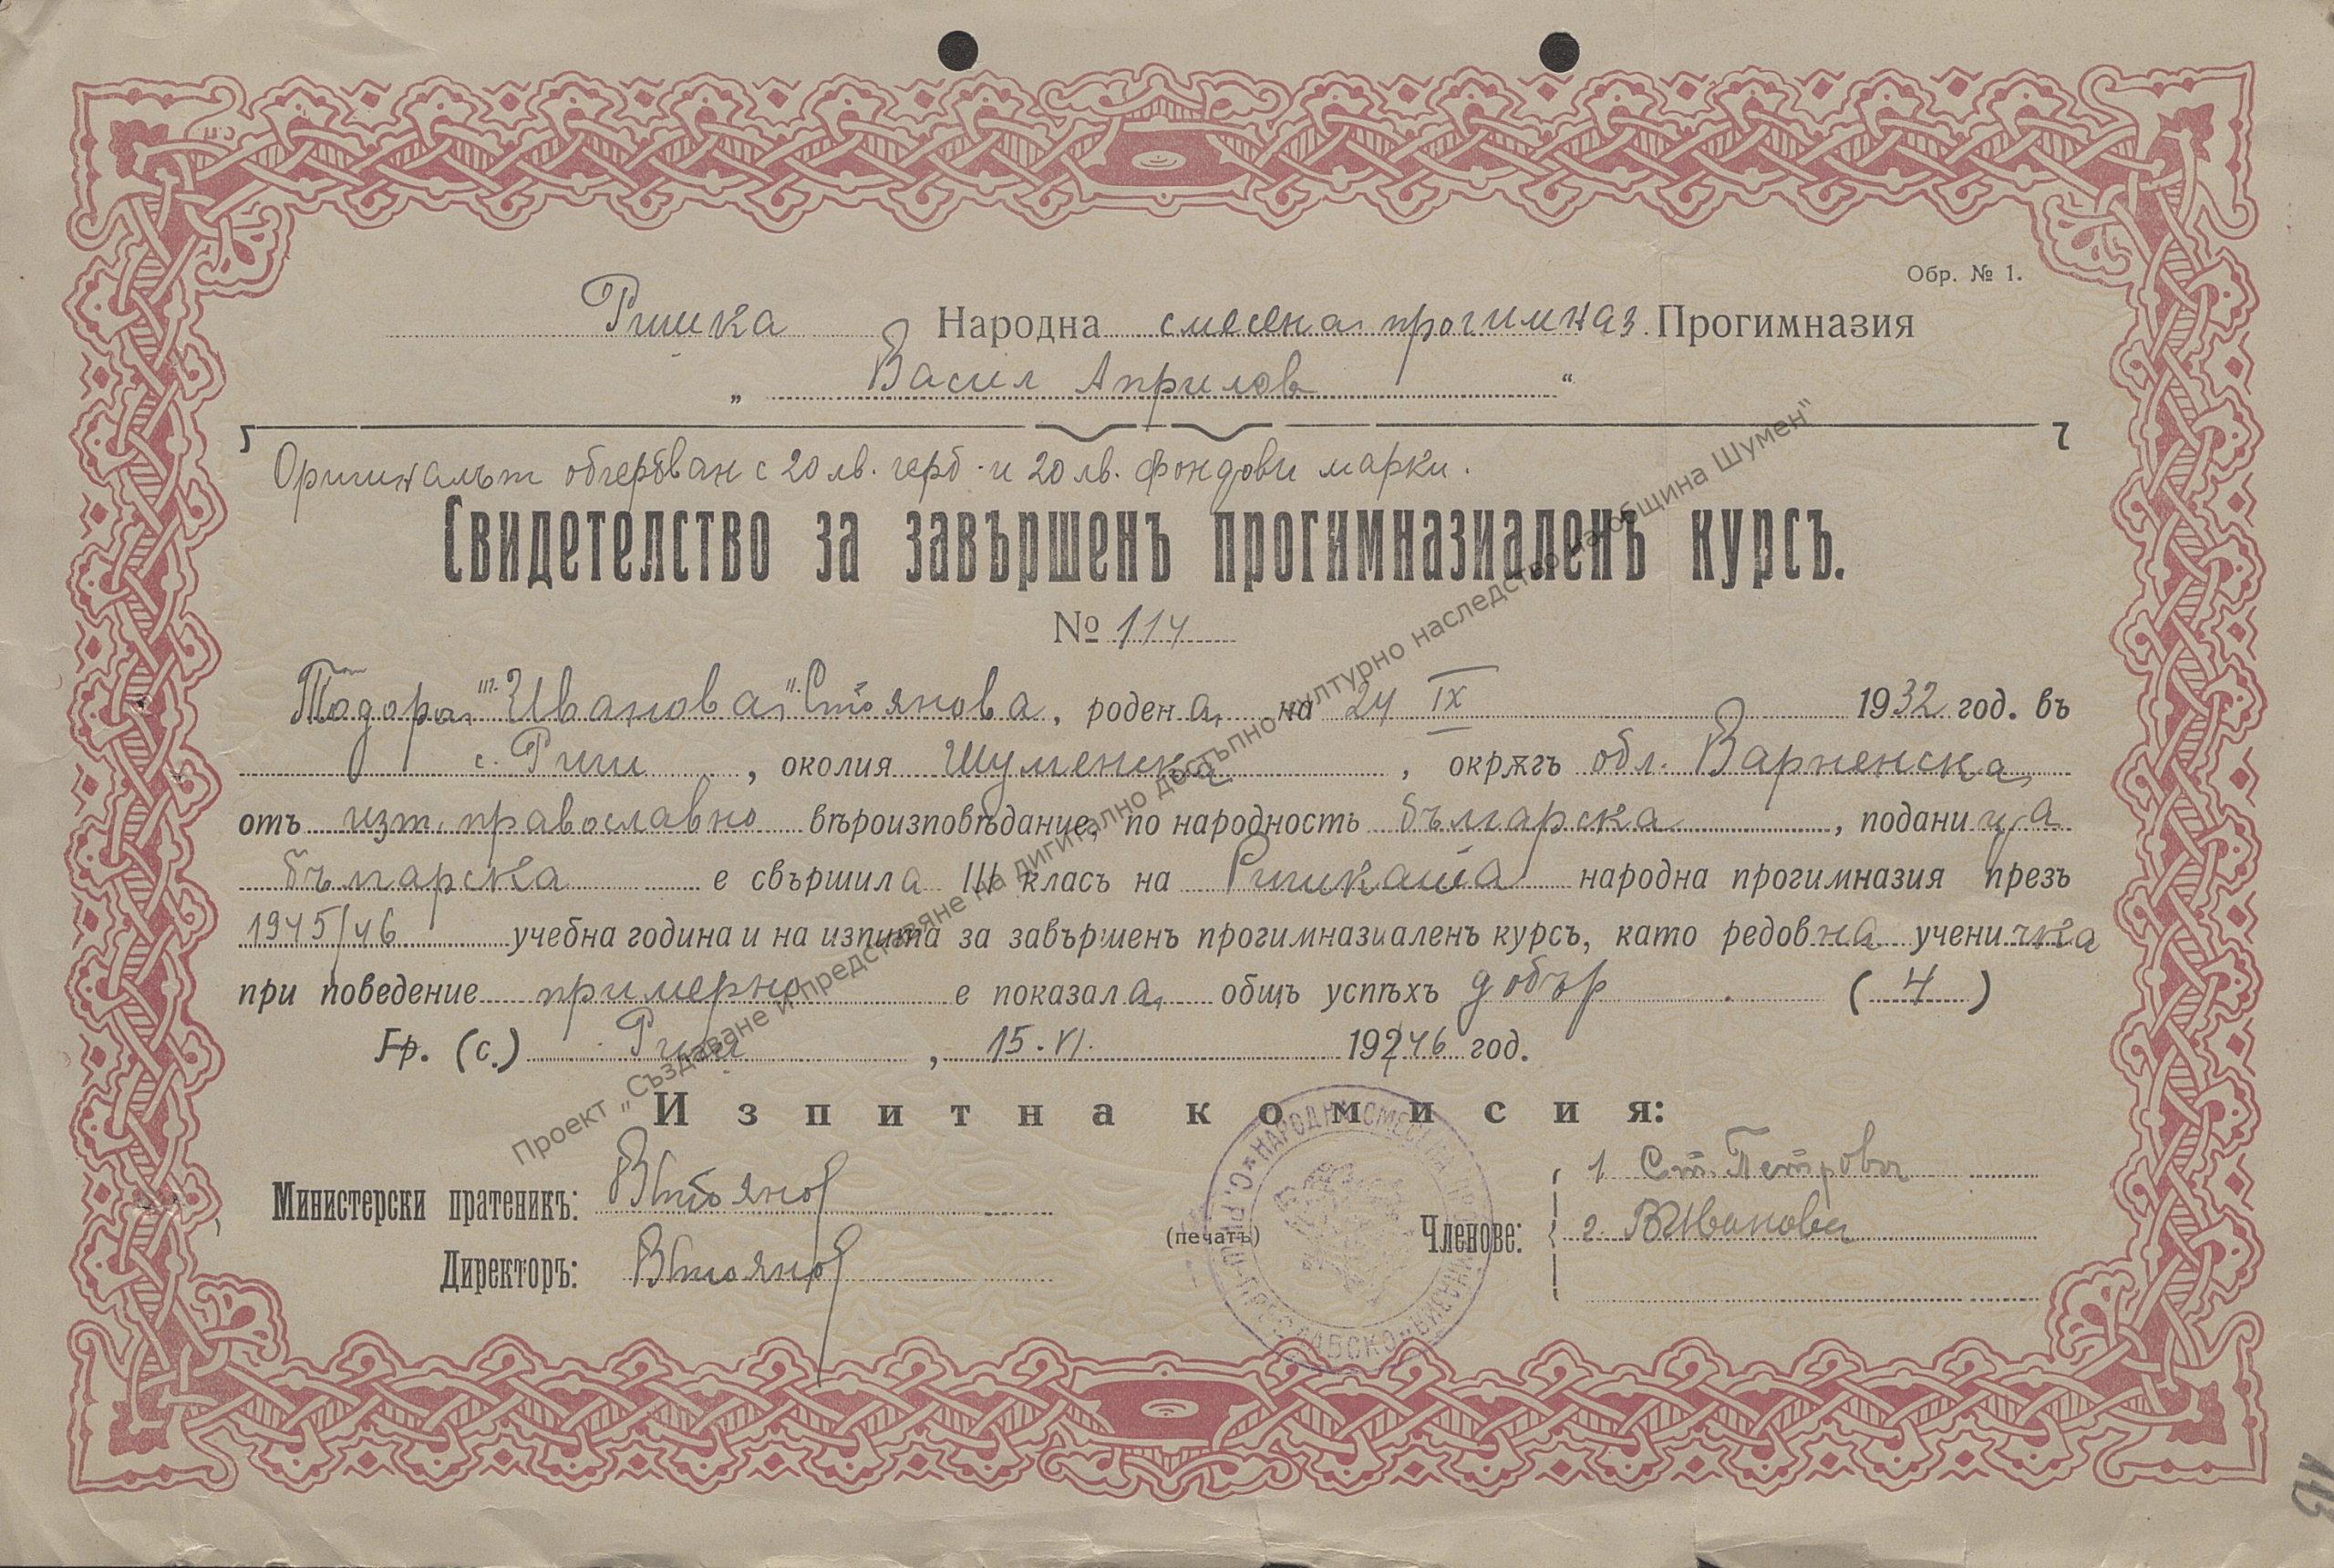 Обр. № 1.
Ришка Народна смесена прогимназ. Прогимназия
„ Васил Априлов “
Оригиналът обгербван с 20 лв. герб. и 20 лв. фондови марки.
Свидетелство за завършенъ прогимназиаленъ курсъ.
№ 114
Тодора Иванова Стоянова, родена на 24 IX 1932 год. въ
с. Риш, околия Шуменска, окрѫгъ обл. Варненска
отъ изт. православно вѣроизповѣдание, по народность българска, поданица
българска е свършила III класъ на Ришката народна прогимназия презъ
1945/46 учебна година и на изпита за завършенъ прогимназиаленъ курсъ, като редовна ученичка
при поведение примерно е показала общъ успѣхъ добър (4)
Гр. (с.) Риш, 15.VI. 1946 год.
Изпитна комисия:
Министерски пратеникъ: ВСтоянов
Директоръ: ВСтоянов
(печатъ)
Членове:
1. Ст. Петрова
2. В Иванова
НАРОДНА СМЕСЕНА
ПРЕСЛАВСКО
Проект „Създаване и представяне на дигитално достъпно културно наследство на община Шумен“
113